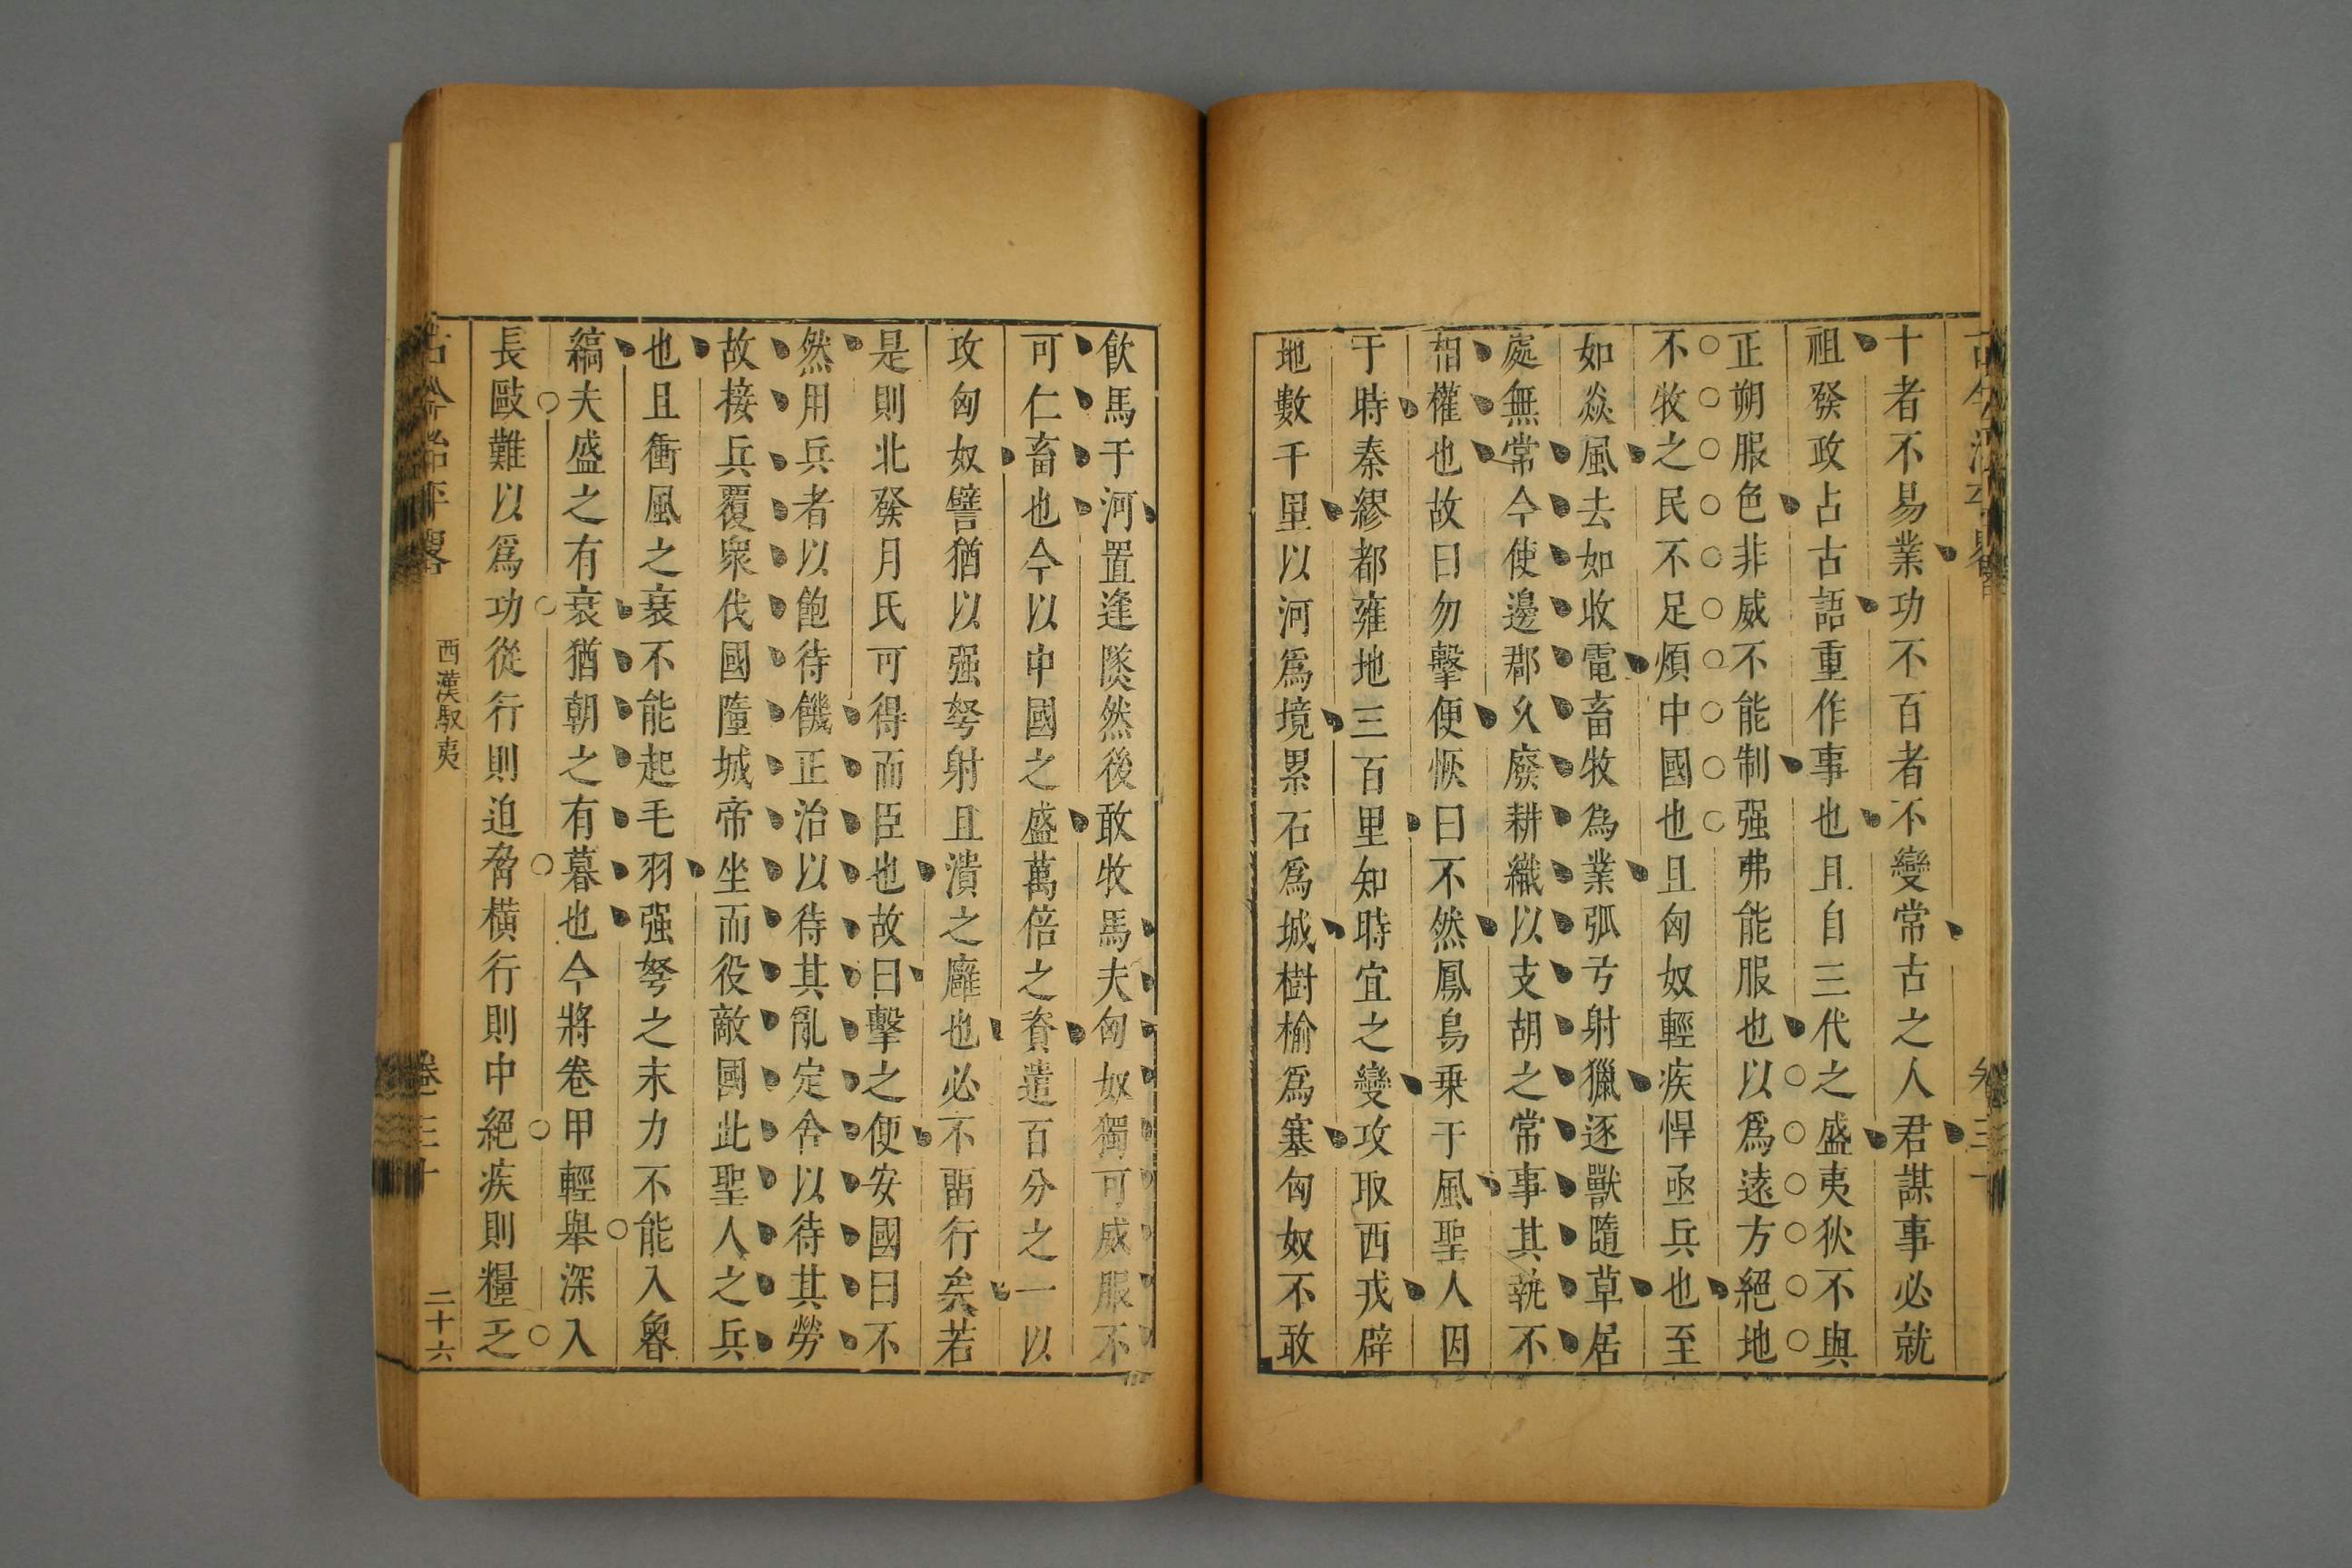 十者不易業功不百者不變常古之人君謀事必就
祖發政占古語重作事也且自三代之盛夷狄不與
正朔服色非威不能制强弗能服也以爲遠方絕地
不牧之民不足煩中國也且匈奴輕疾悍亟兵也至
如焱風去如收電畜牧為業弧弓射獵逐獸隨草居
處無常今使邊郡久廢耕織以支胡之常事其埶不
相權也故曰勿擊便恢曰不然鳳鳥乗于風聖人因
于時秦繆都雍地三百里知時宜之變攻取西戎辟
地數千里以河爲境累石爲城樹榆爲塞匈奴不敢
飲馬于河置逢隧然後敢牧馬夫匈奴獨可威服不
可仁畜也今以中國之盛萬倍之資遣百分之一以
攻匈奴譬猶以强弩射且潰之廱也必不畱行矣若
是則北發月氏可得而臣也故曰擊之便安國曰不
然用兵者以飽待饑正治以待其亂定舍以待其勞
故接兵覆衆伐國隳城帝坐而役敵國此聖人之兵
也且衝風之衰不能起毛羽强弩之末力不能入魯
縞夫盛之有衰猶朝之有暮也今將卷甲輕舉深入
長敺難以爲功從行則迫脅橫行則中絕疾則糧乏
古今治平畧 西漢馭夷 卷三十 二十六